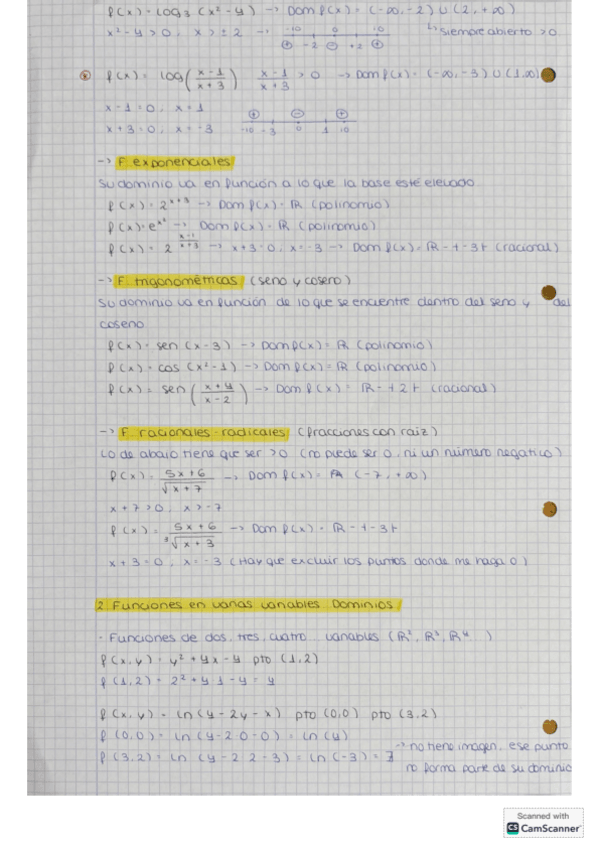 f(x) = log3 (x² - 4) -> Dom f(x) = (-∞, -2) ∪ (2, +∞)
x² - 4 > 0, x > ± 2 -> -10 0 10 ↳ siempre abierto > 0
⊕ -2 ⊖ +2 ⊕
f(x) = log(x-1/x+3) x-1/x+3 > 0 -> Dom f(x) = (-∞, -3) ∪ (1, ∞)
x - 1 = 0, x = 1 ⊕ ⊖ ⊕
x + 3 = 0, x = -3 -10 -3 0 1 10
-> F. exponenciales
Su dominio va en función a lo que la base esté elevado
f(x) = 2^(x+3) -> Dom f(x) = ℝ (polinomio)
f(x) = e^(x²) -> Dom f(x) = ℝ (polinomio)
f(x) = 2^(x-1/x+3) -> x+3=0, x=-3 -> Dom f(x) = ℝ - {-3} (racional)
-> F. trigonométricas (seno y coseno)
Su dominio va en función de lo que se encuentre dentro del seno y del
coseno
f(x) = sen (x-3) -> Dom f(x) = ℝ (polinomio)
f(x) = cos (x²-1) -> Dom f(x) = ℝ (polinomio)
f(x) = sen (x+4/x-2) -> Dom f(x) = ℝ - {+2} (racional)
-> F. racionales-radicales (fracciones con raiz)
Lo de abajo tiene que ser >0 (no puede ser 0, ni un número negativo)
f(x) = 5x+6/√x+7 -> Dom f(x) = (-7, +∞)
x + 7 > 0, x > -7
f(x) = 5x+6/³√x+3 -> Dom f(x) = ℝ - {-3}
x + 3 = 0, x = -3 (Hay que excluir los puntos donde me haga 0)
2. Funciones en varias variables. Dominios
- Funciones de dos, tres, cuatro... variables (ℝ², ℝ³, ℝ⁴...)
f(x,y) = y² + 4x - 4 pto (1,2)
f(1,2) = 2² + 4·1 - 4 = 4
f(x,y) = ln(4 - 2y - x) pto (0,0) pto (3,2)
f(0,0) = ln(4 - 2·0 - 0) = ln(4)
f(3,2) = ln(4 - 2·2 - 3) = ln(-3) = ∄ -> no tiene imagen, ese punto
no forma parte de su dominio
Scanned with
CS CamScanner